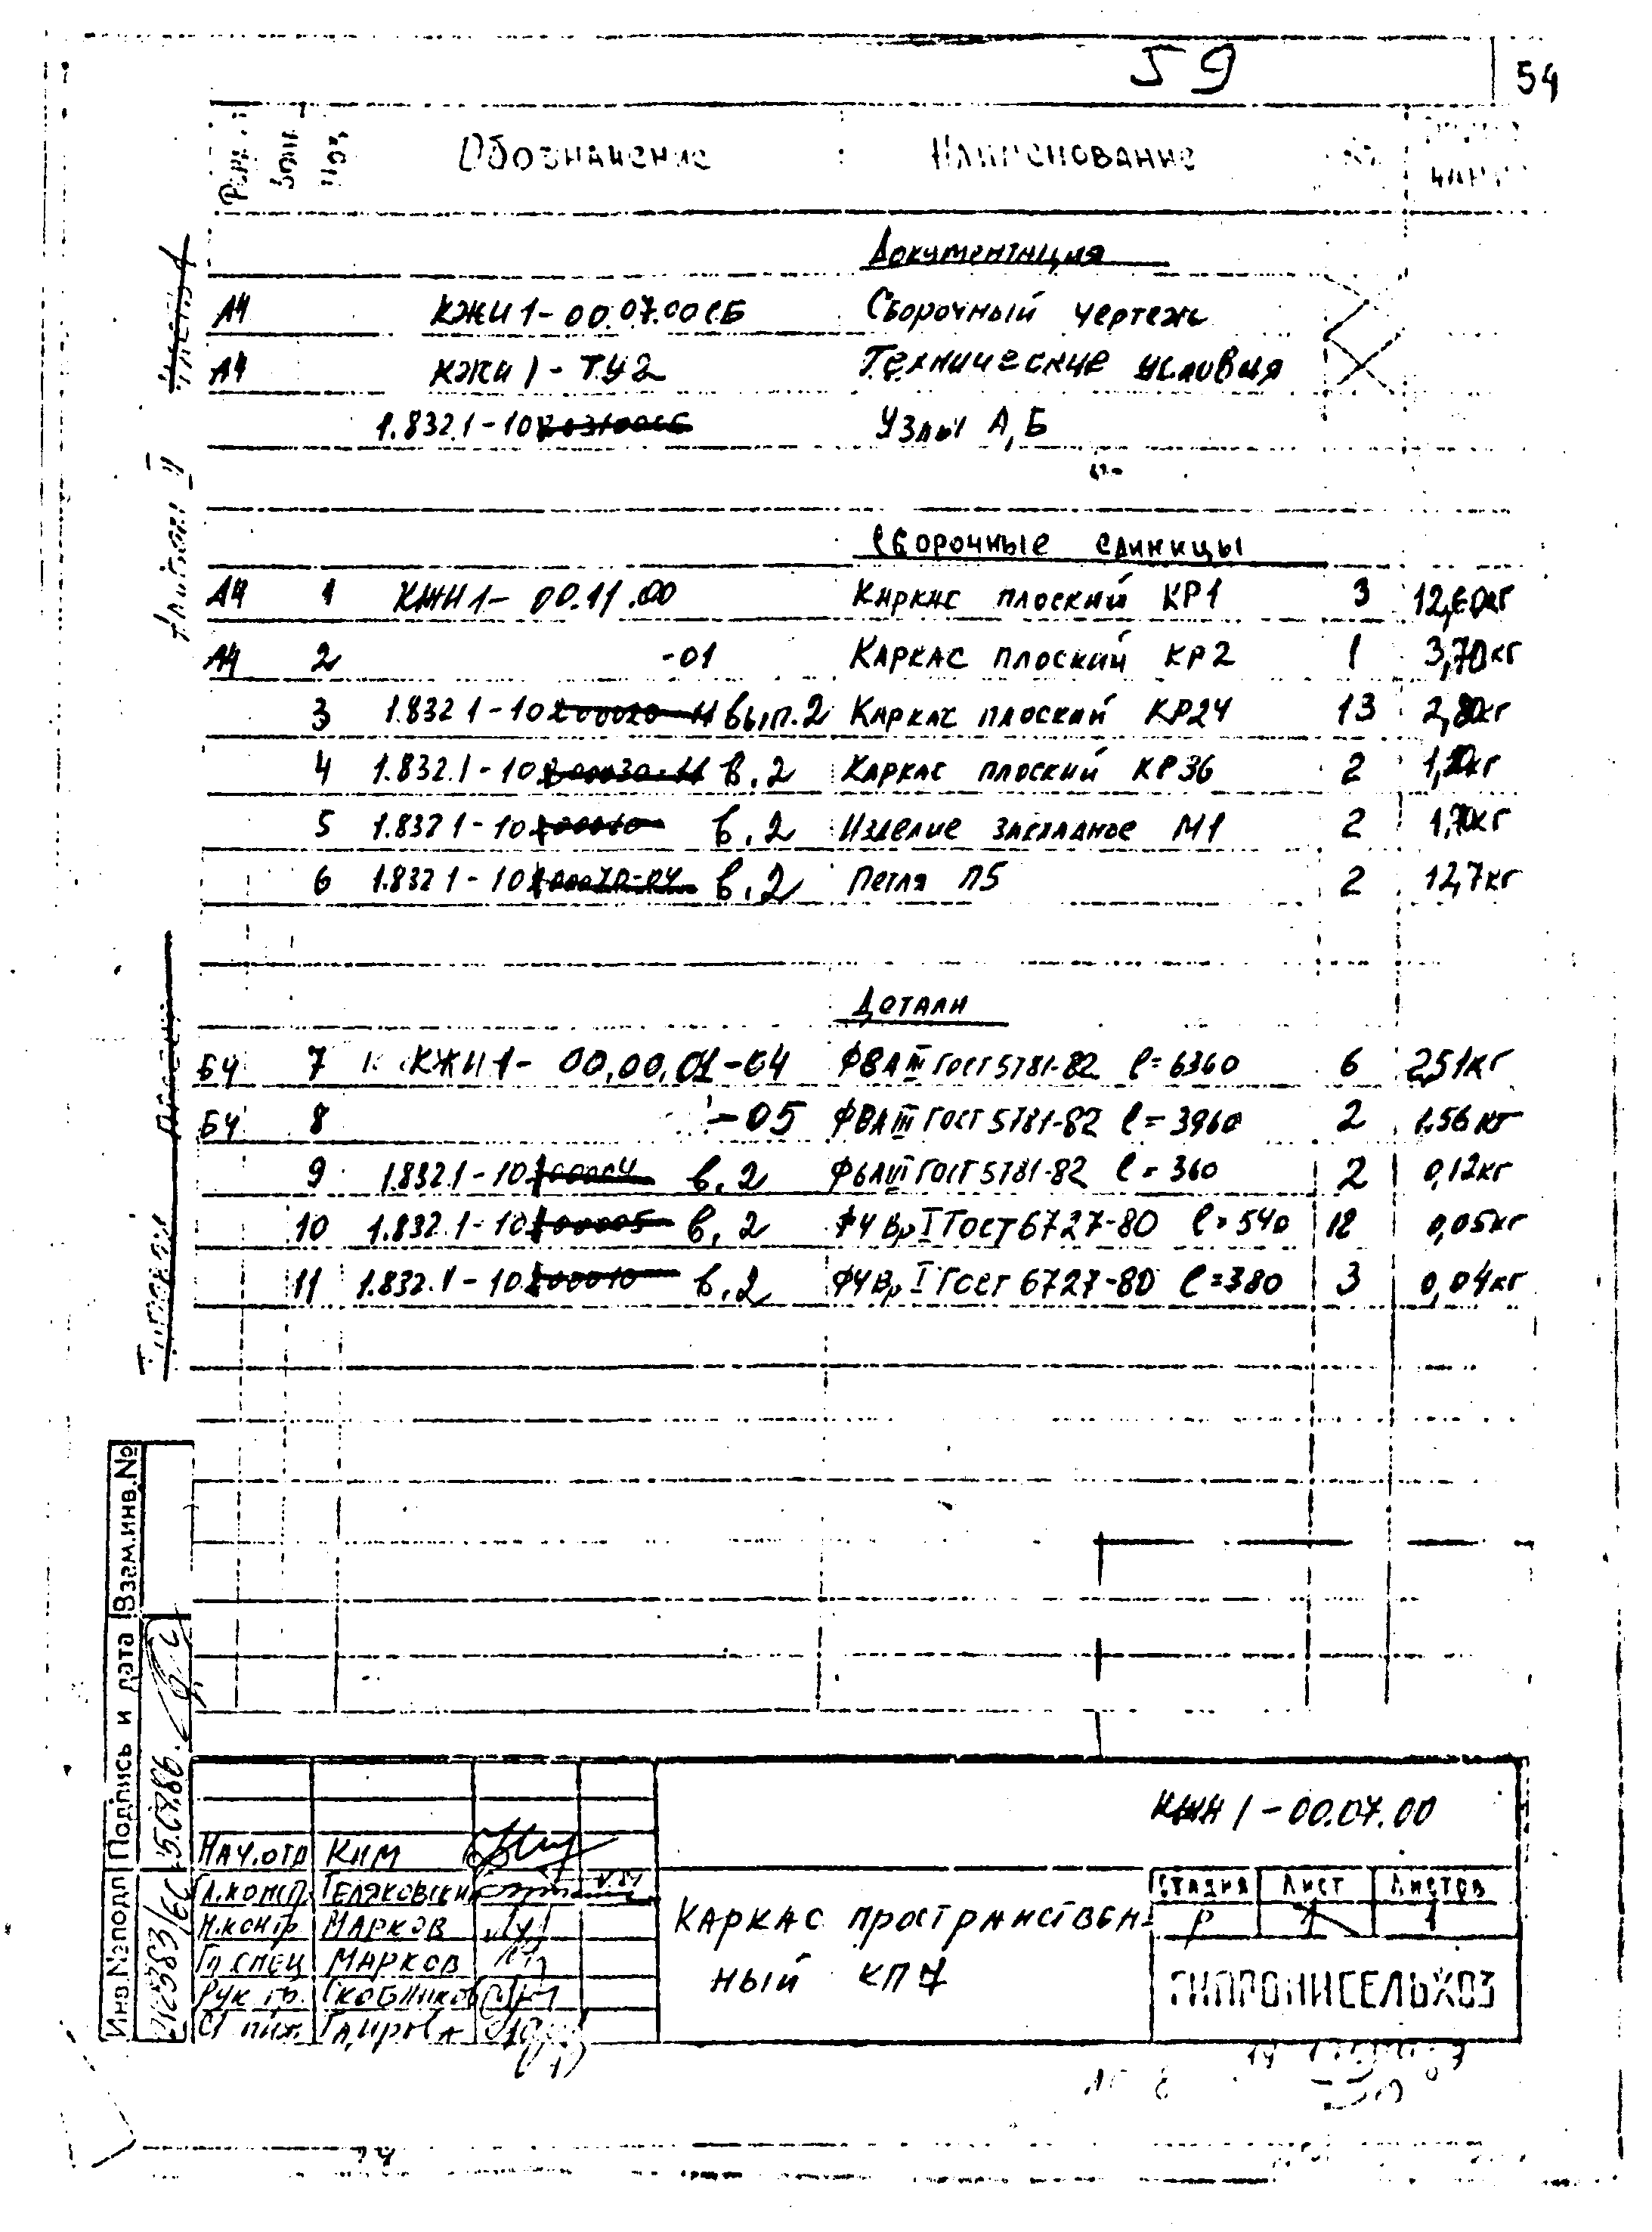 59
54
Обозначение Наименование
Документация
А4 КЖИ 1-00.07.00СБ Сборочный чертеж
А4 КЖИ 1-ТУ2 Технические условия
1.832.1-10 Узлы А,Б
Сборочные единицы
А4 1 КЖИ 1-00.11.00 Каркас плоский КР1 3 12,60кг
А4 2 -01 Каркас плоский КР2 1 3,70кг
3 1.832.1-10 вып.2 Каркас плоский КР24 13 2,80кг
4 1.832.1-10 в.2 Каркас плоский КР36 2 1,20кг
5 1.832.1-10 в.2 Изделие закладное М1 2 1,70кг
6 1.832.1-10 в.2 Петля П5 2 12,7кг
Детали
БЧ 7 КЖИ 1-00.00.01-04 Ф8АIII ГОСТ 5781-82 ℓ=6360 6 2,51кг
БЧ 8 -05 Ф8АIII ГОСТ 5781-82 ℓ=3960 2 1,56кг
9 1.832.1-10 в.2 Ф6АIII ГОСТ 5781-82 ℓ=360 2 0,12кг
10 1.832.1-10 в.2 Ф4ВрI ГОСТ 6727-80 ℓ=540 12 0,05кг
11 1.832.1-10 в.2 Ф4ВрI ГОСТ 6727-80 ℓ=380 3 0,04кг
Взам.инв.№
Подпись и дата
Инв.№подл
КЖИ 1-00.07.00
Нач.отд Ким
Гл.констр.
Н.контр. Марков
Гл спец Марков
Рук гр.
Ст инж.
Каркас пространствен-
ный КП7
Стадия Лист Листов
Р 1 1
ГИПРОНИСЕЛЬХОЗ